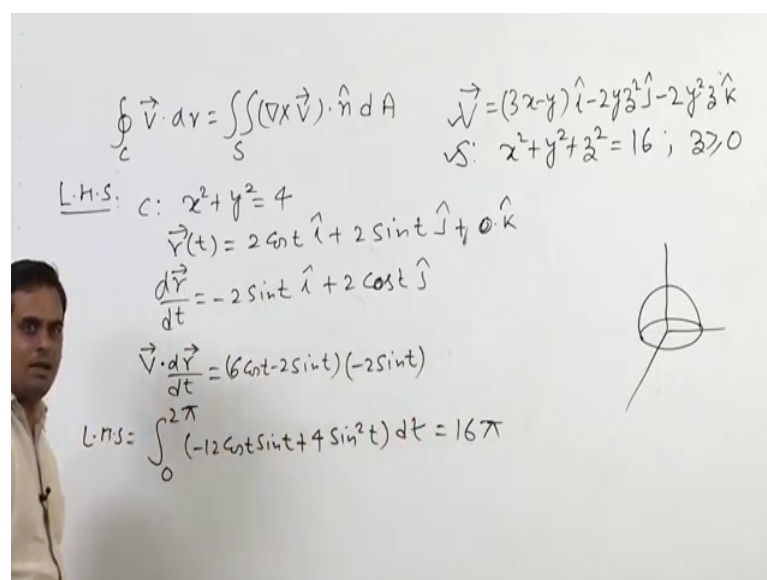 ∮_C V⃗·dr = ∬_S (∇×V⃗)·n̂ dA
V⃗ = (3x-y)î-2yz²ĵ-2y²z k̂
S: x²+y²+z² = 16 ; z≥0
L.H.S: C: x²+y² = 4
r⃗(t) = 2 cost î + 2 sint ĵ + 0·k̂
dr⃗/dt = -2 sint î + 2 cost ĵ
V⃗·dr⃗/dt = (6 cost-2 sint)(-2 sint)
L.H.S = ∫₀^2π (-12 cost sint + 4 sin²t) dt = 16π